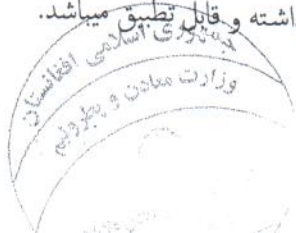 اشته و قابل تطبیق میباشد.
جمهوری اسلامی افغانستان
وزارت معادن و پطرولیم